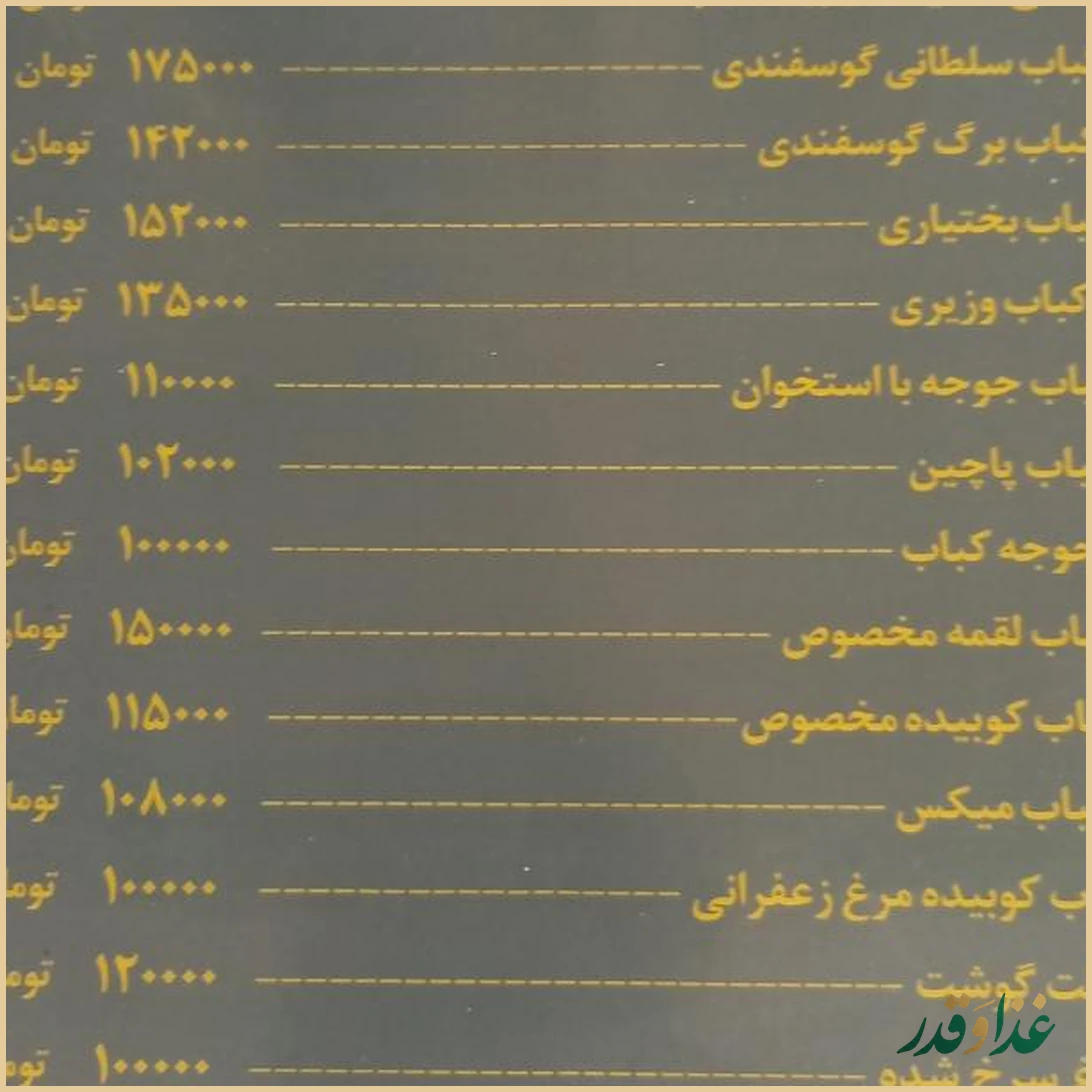 کباب سلطانی گوسفندی ---------- ۱۷۵۰۰۰ تومان
کباب برگ گوسفندی ---------- ۱۴۲۰۰۰ تومان
کباب بختیاری ---------- ۱۵۲۰۰۰ تومان
کباب وزیری ---------- ۱۳۵۰۰۰ تومان
کباب جوجه با استخوان ---------- ۱۱۰۰۰۰ تومان
کباب پاچین ---------- ۱۰۲۰۰۰ تومان
جوجه کباب ---------- ۱۰۰۰۰۰ تومان
باب لقمه مخصوص ---------- ۱۵۰۰۰۰ تومان
باب کوبیده مخصوص ---------- ۱۱۵۰۰۰ توما
باب میکس ---------- ۱۰۸۰۰۰ توما
ب کوبیده مرغ زعفرانی ---------- ۱۰۰۰۰۰ توما
گوشت ---------- ۱۲۰۰۰۰ توم
سرخ شده ---------- ۱۰۰۰۰۰ توم
غذا و قدر